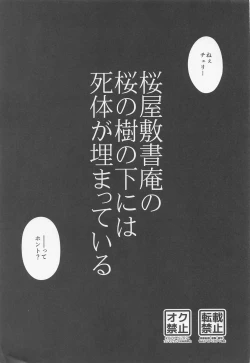 ねぇ
チェリー
桜屋敷書庵の
桜の樹の下には
死体が埋まっている
――って
ホント？
オク
禁止
転載
禁止